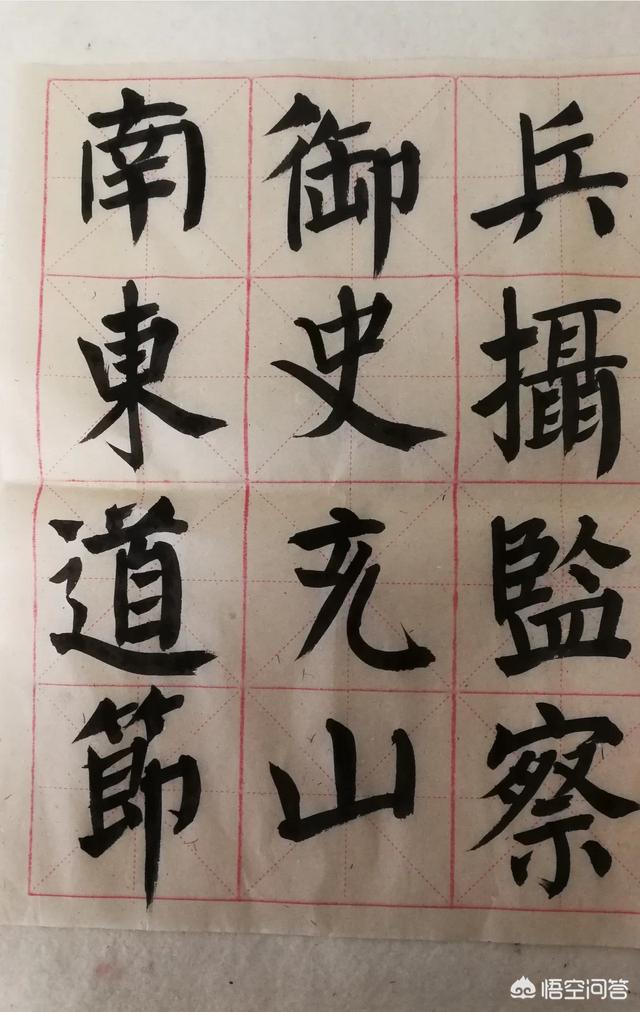 兵攝監察
御史充山
南東道節
悟空问答